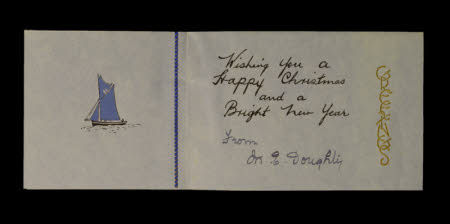 Wishing you a
Happy Christmas
and a
Bright New Year
From